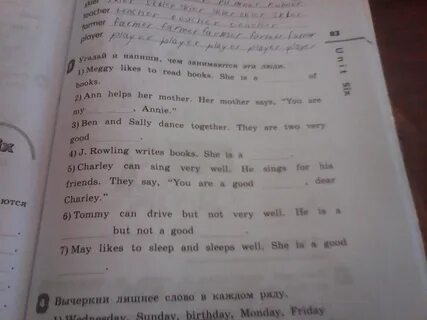 teacher teacher teacher teacher
farmer farmer farmer farmer farmer farmer
player player player player player player
83
Unit Six
Угадай и напиши, чем занимаются эти люди.
1) Meggy likes to read books. She is a ________ of
books.
2) Ann helps her mother. Her mother says, "You are
my ________, Annie."
3) Ben and Sally dance together. They are two very
good ________.
4) J. Rowling writes books. She is a ________.
5) Charley can sing very well. He sings for his
friends. They say, "You are a good ________, dear
Charley."
6) Tommy can drive but not very well. He is a
________ but not a good ________.
7) May likes to sleep and sleeps well. She is a good
________.
Вычеркни лишнее слово в каждом ряду.
1) Wednesday, Sunday, birthday, Monday, Friday